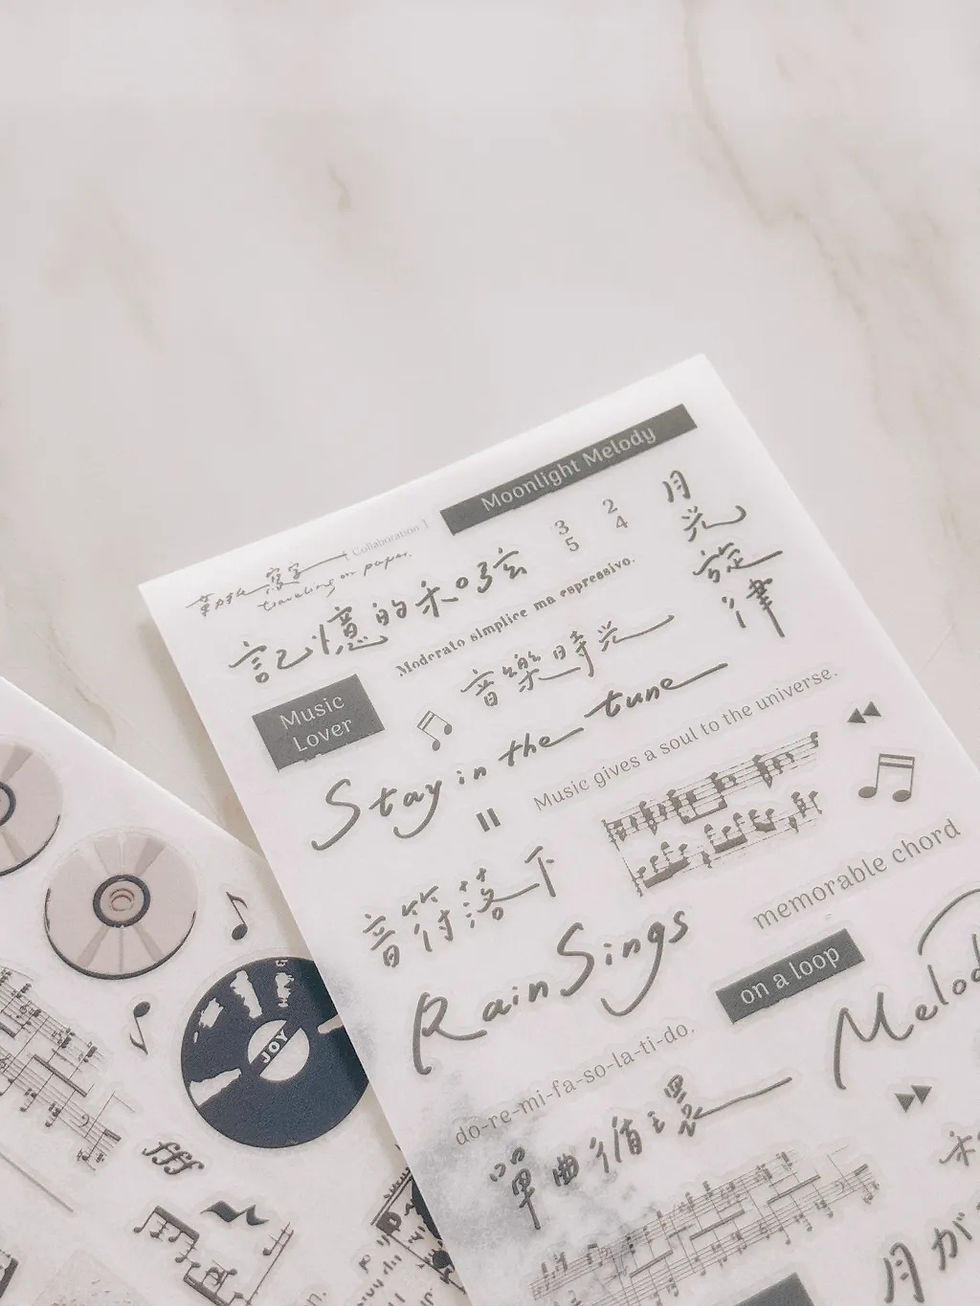 Moonlight Melody
Collaboration 1
寫字
traveling on paper.
3
5
2
4
月光旋律
記憶的和弦
Moderato simplice ma espressivo.
Music
Lover
音樂時光
Stay in the tune
Music gives a soul to the universe.
音符落下
memorable chord
Rain Sings
on a loop
Melod
do-re-mi-fa-so-la-ti-do.
單曲循環
月が
JOY
fff